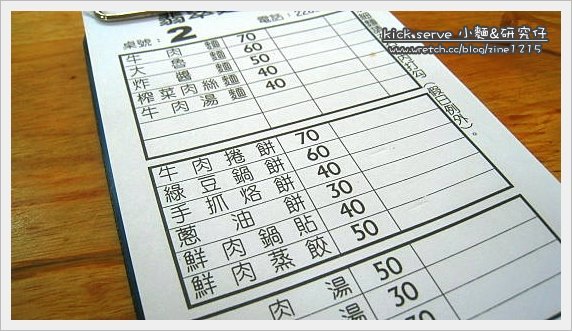 kick serve 小麵&研究仔
www.wretch.cc/blog/zine1215
翡翠
電話：220
桌號：2
牛肉麵 70
大魯麵 60
炸醬麵 50
榨菜肉絲麵 40
牛肉湯麵 40
(假日例外)。
牛肉捲餅 70
綠豆鍋餅 60
手抓烙餅 40
蔥油餅 30
鮮肉鍋貼 40
鮮肉蒸餃 50
肉湯 50
湯 30